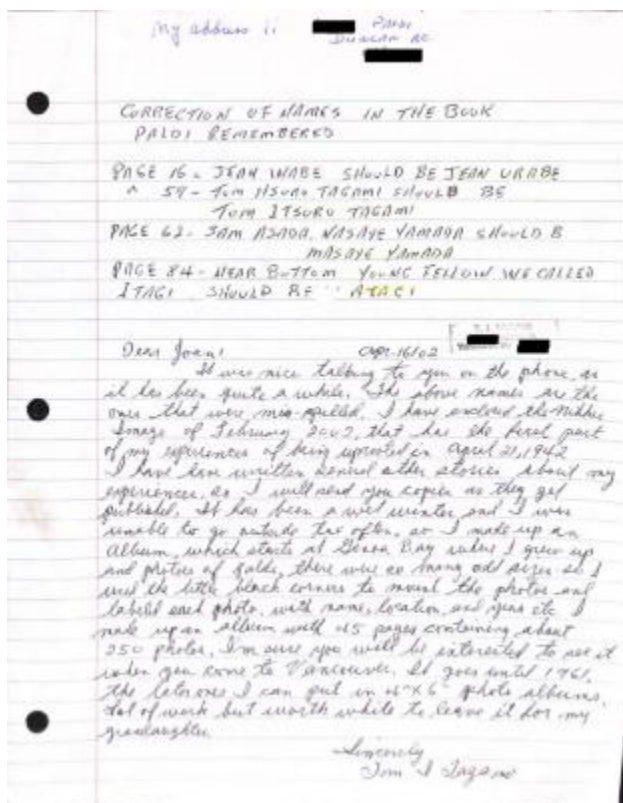 My address is Paldi
Duncan BC
CORRECTION OF NAMES IN THE BOOK
PALDI REMEMBERED
PAGE 16 - JEAN WABE SHOULD BE JEAN URABE
" 59 - TOM ITSURO TAGAMI SHOULD BE
TOM ITSURO TAGAMI
PAGE 62 - SAM ASADA, MASAYE YAMADA SHOULD B
MASAYE YAMADA
PAGE 84 - NEAR BOTTOM YOUNG FELLOW WE CALLED
ITAGI SHOULD BE "ATAGI
Dear Joan! Apr. 16/02
It was nice talking to you on the phone, as
it has been quite a while. The above names are the
ones that were mis-spilled. I have enclosed the Nikkei
Image of February 2002, that has the first part
of my experiences of being uprooted in April 21, 1942
I have written several other stories about my
experiences, so I will send you copies as they get
published. It has been a wet winter and I was
unable to go outside too often, so I made up an
Album, which starts at Genoa Bay where I grew up
and photos of Paldi, there were so many odd sizes so I
used the little black corners to mount the photos and
labeld each photo, with name, location, and years etc I
made up an album with 45 pages containing about
250 photos. I'm sure you will be interested to see it
when you come to Vancouver. It goes until 1961,
the later ones I can put in 4"x6" photo albums.
Lot of work but worth while to leave it for my
grandaughter.
Sincerely
Tom I Tagami